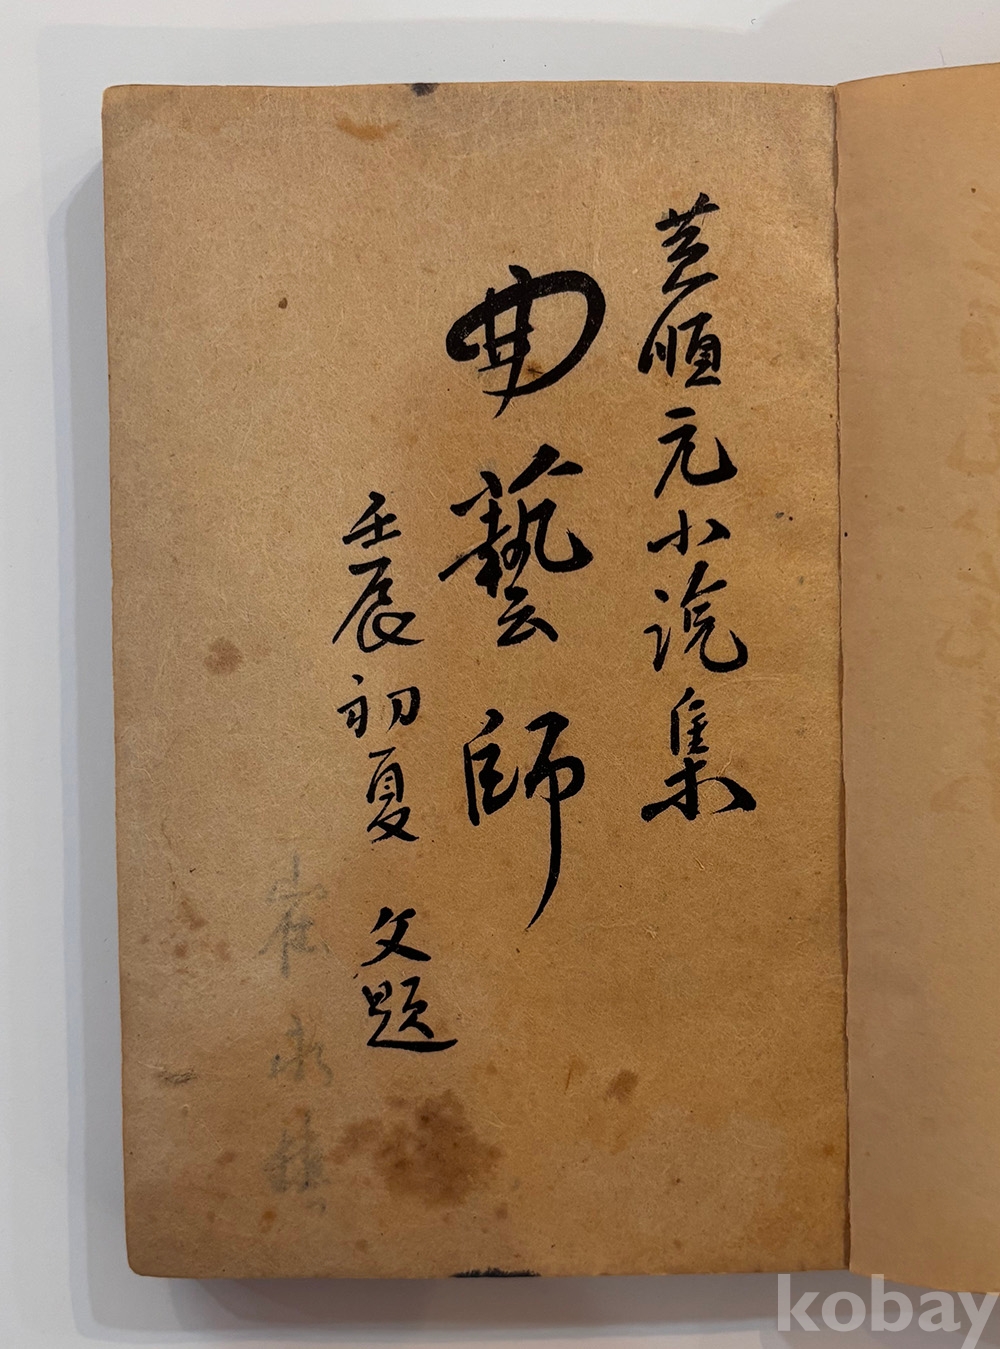 黃順元小說集
曲藝師
壬辰初夏 文題
kobay